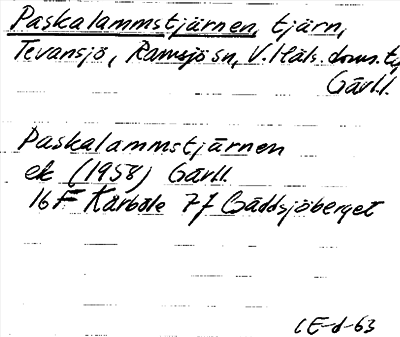 Paskalammstjärnen, tjärn,
Tevansjö, Ramsjö sn, V. Häls. doms. tg
Gävl.l.
Paskalammstjärnen
ek (1958) Gävl.l.
16 F Kårböle 7 J Gäddsjöberget
CE-d-63